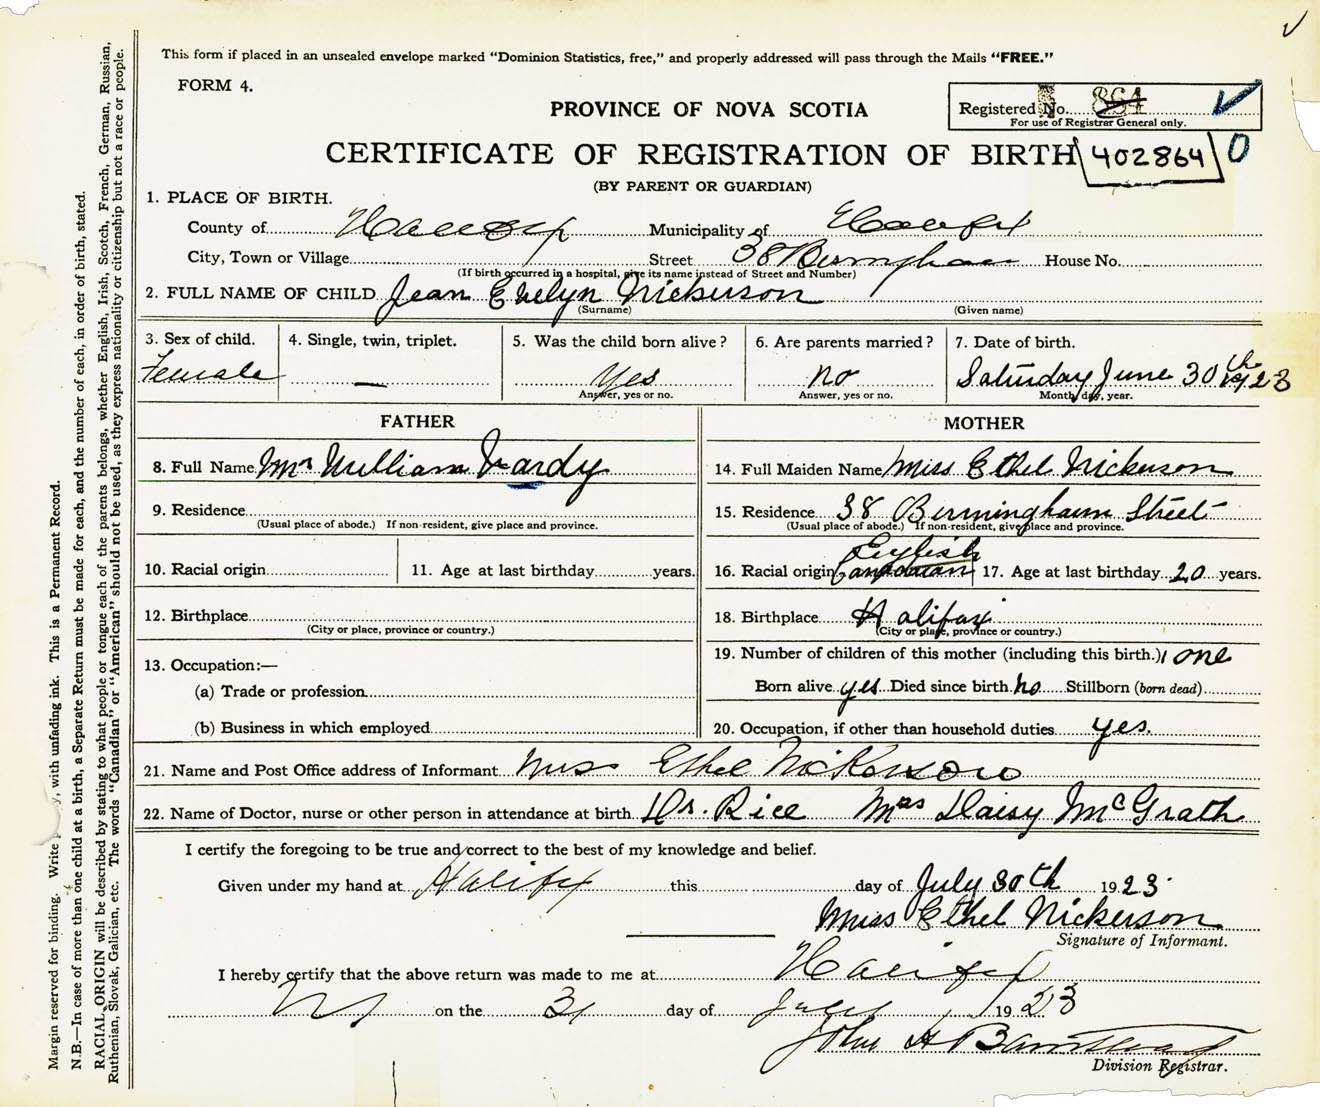 This form if placed in an unsealed envelope marked "Dominion Statistics, free," and properly addressed will pass through the Mails "FREE."
FORM 4.
PROVINCE OF NOVA SCOTIA
Registered No. 864
For use of Registrar General only.
CERTIFICATE OF REGISTRATION OF BIRTH 402864 0
(BY PARENT OR GUARDIAN)
1. PLACE OF BIRTH.
County of Halifax Municipality of Halifax
City, Town or Village Street 38 Birmingham House No.
(If birth occurred in a hospital, give its name instead of Street and Number)
2. FULL NAME OF CHILD Jean Evelyn Nickerson
(Surname) (Given name)
3. Sex of child. 4. Single, twin, triplet. 5. Was the child born alive? 6. Are parents married? 7. Date of birth.
Female — Yes no Saturday June 30th 1923
Answer, yes or no. Answer, yes or no. Month, day, year.
FATHER MOTHER
8. Full Name Mr William Vardy 14. Full Maiden Name Miss Ethel Nickerson
9. Residence 15. Residence 38 Birmingham Street
(Usual place of abode.) If non-resident, give place and province. (Usual place of abode.) If non-resident, give place and province.
English
10. Racial origin 11. Age at last birthday years. 16. Racial origin Canadian 17. Age at last birthday 20 years.
12. Birthplace 18. Birthplace Halifax
(City or place, province or country.) (City or place, province or country.)
13. Occupation:— 19. Number of children of this mother (including this birth.) 1 one
(a) Trade or profession Born alive yes Died since birth no Stillborn (born dead)
(b) Business in which employed 20. Occupation, if other than household duties yes.
21. Name and Post Office address of Informant Miss Ethel Nickerson
22. Name of Doctor, nurse or other person in attendance at birth Dr. Rice Mrs Daisy McGrath
I certify the foregoing to be true and correct to the best of my knowledge and belief.
Given under my hand at Halifax this day of July 30th 1923
Miss Ethel Nickerson
Signature of Informant.
I hereby certify that the above return was made to me at Halifax
NS on the 31 day of July 1923
John A
Division Registrar.
Margin reserved for binding. Write, with unfading ink. This is a Permanent Record.
N.B.—In case of more than one child at a birth, a Separate Return must be made for each, and the number of each, in order of birth, stated.
RACIAL ORIGIN will be described by stating to what people or tongue each of the parents belongs, whether English, Irish, Scotch, French, German, Russian,
Ruthenian, Slovak, Galician, etc. The words "Canadian" or "American" should not be used, as they express nationality or citizenship but not a race or people.